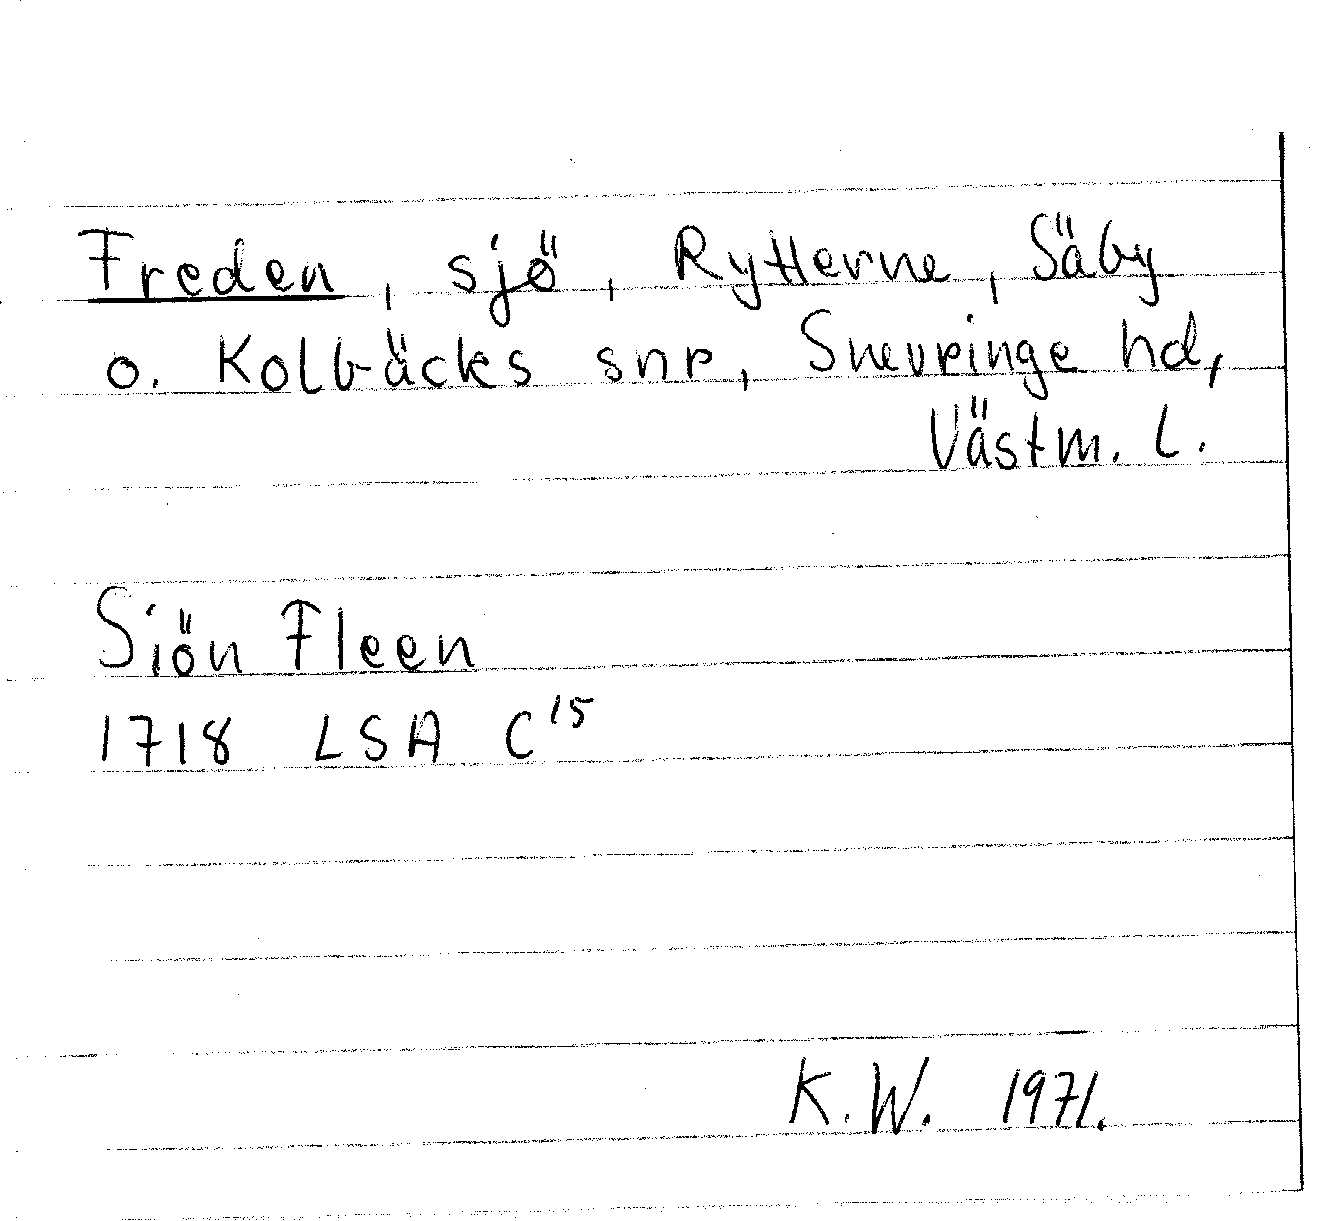 Freden, sjö, Rytterne, Säby
o. Kolbäcks snr, Snevringe hd,
Västm. l.
Siön Fleen
1718 LSA C¹⁵
K.W. 1971.